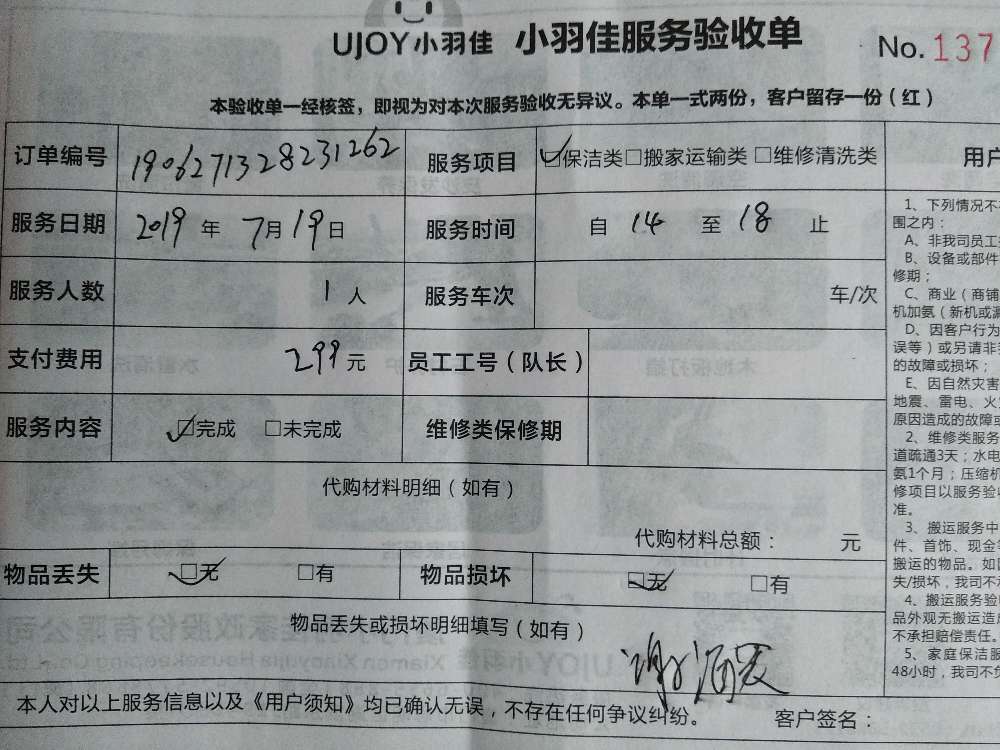 UJOY小羽佳 小羽佳服务验收单 No.137
本验收单一经核签，即视为对本次服务验收无异议。本单一式两份，客户留存一份（红）
订单编号 1906271328231262 服务项目 ☑保洁类□搬家运输类 □维修清洗类 用户
服务日期 2019 年 7月19日 服务时间 自 14 至 18 止
服务人数 1 人 服务车次 车/次
支付费用 299元 员工工号（队长）
服务内容 ☑完成 □未完成 维修类保修期
代购材料明细（如有）
代购材料总额： 元
物品丢失 ☑无 □有 物品损坏 ☑无 □有
物品丢失或损坏明细填写（如有）
本人对以上服务信息以及《用户须知》均已确认无误，不存在任何争议纠纷。 客户签名：
1、下列情况不
围之内：
A、非我司员工
B、设备或部件
修期；
C、商业（商铺
机加氨（新机或漏
D、因客户行为
误等）或另请非
的故障或损坏；
E、因自然灾害
地震、雷电、火
原因造成的故障或
2、维修类服务
道疏通3天；水电
氨1个月；压缩机
修项目以服务验
准。
3、搬运服务中
件、首饰、现金
搬运的物品。如
失/损坏，我司不
4、搬运服务验
品外观无搬运造
不承担赔偿责任。
5、家庭保洁服
48小时，我司不